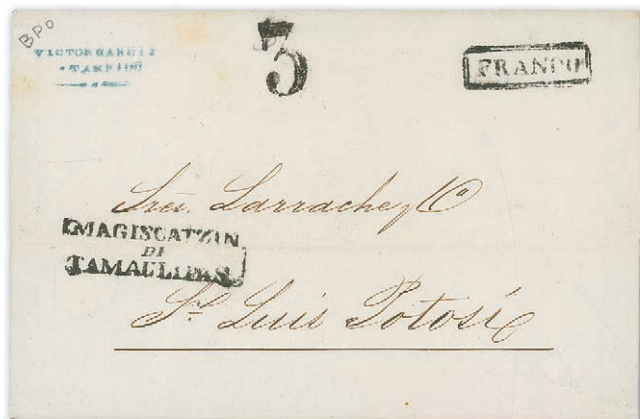 BPO
VICTOR GARCIA
TAMPICO
3
FRANCO
Sres. Larrache y Ca
MAGISCATZIN
DI
TAMAULIPAS
Sn Luis Potosí